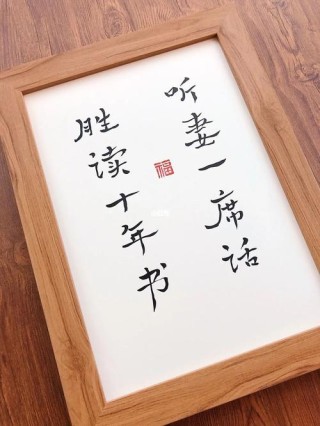 听妻一席话
胜读十年书
福